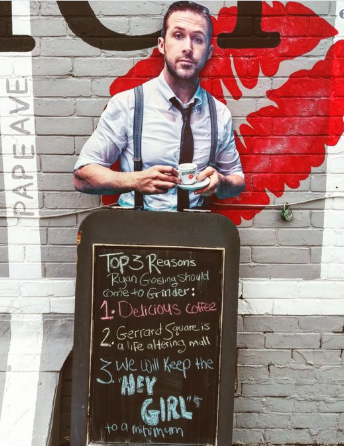 PAPE AVE
Top 3 Reasons
Ryan Gosling should
come to Grinder:
1. Delicious coffee
2. Gerrard Square is
a life altering mall
3. We will keep the
"HEY
GIRL"s
to a minimum